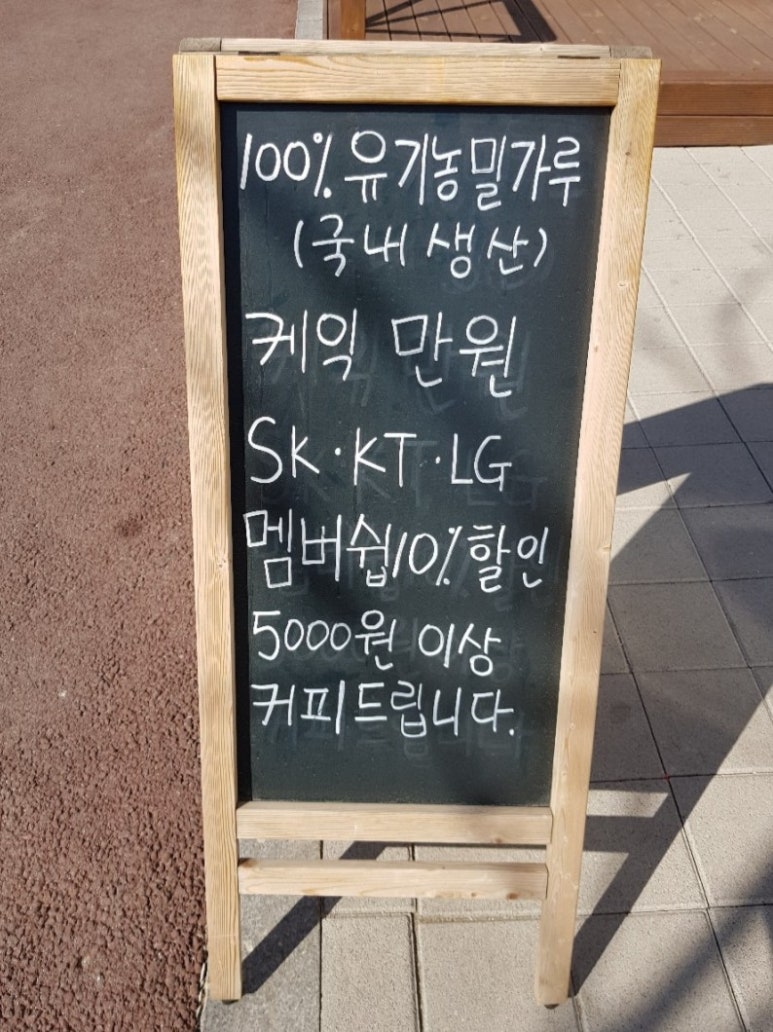 100% 유기농밀가루
(국내 생산)
케익 만원
SK·KT·LG
멤버쉽10% 할인
5000원 이상
커피드립니다.